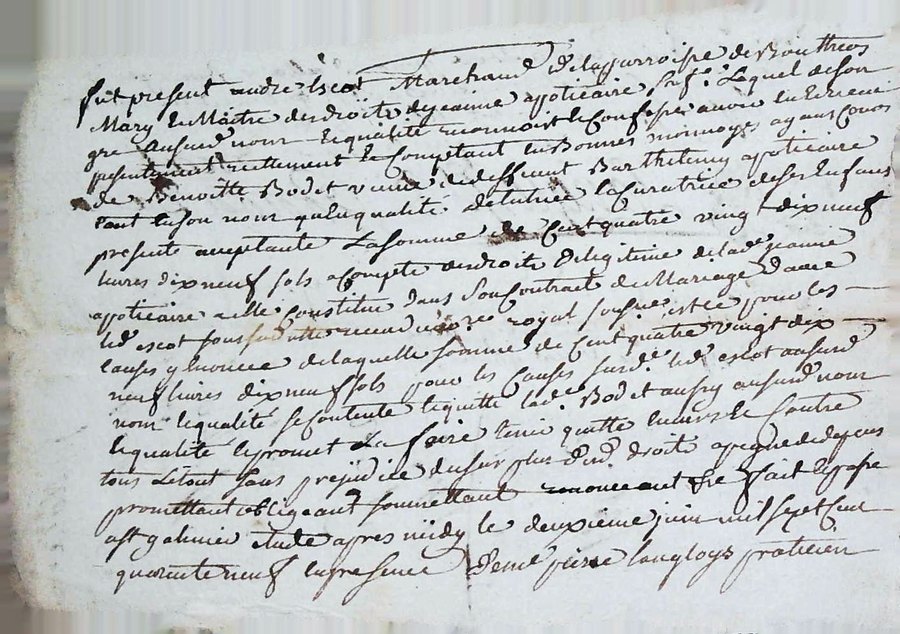 fut present andre escot Marchand de la parroisse de
Mary et Maitre des droits de jeanne apoticaire sa fe. Lequel de son
gré audit nom et qualité reconnoit et Confesse avoir eu et receu
presentement reellement et Comptant en Bonnes monnoyes ayant Cours
de Benoitte Bodet veuve de deffunt Barthelemy apoticaire
tant en son nom qu'en qualité de tutrice et Curatrice de ses Enfans
presente acceptante La somme de Cent quatre vingt dix neuf
livres dix neuf sols a compte des droits de legitime de lade jeanne
apoticaire a elle Constitué dans Son Contrat de Mariage avec
led escot receu royal pour les
Causes y enoncée de laquelle somme de Cent quatre vingt dix
neuf livres dix neuf sols pour les Causes surd. led escot audit
nom et qualité se Contente et quitte lade Bodet aussy audit nom
et qualité et promet La faire tenir quitte envers et Contre
tous Le tout Sans prejudice du surplus desd. droits a peyne de depens
promettant obligeant soumettant renonceant &c fait et passé
a St galmier etude apres midy le deuxieme juin mil sept Cent
quarente neuf en presence de me pierre langloys praticien